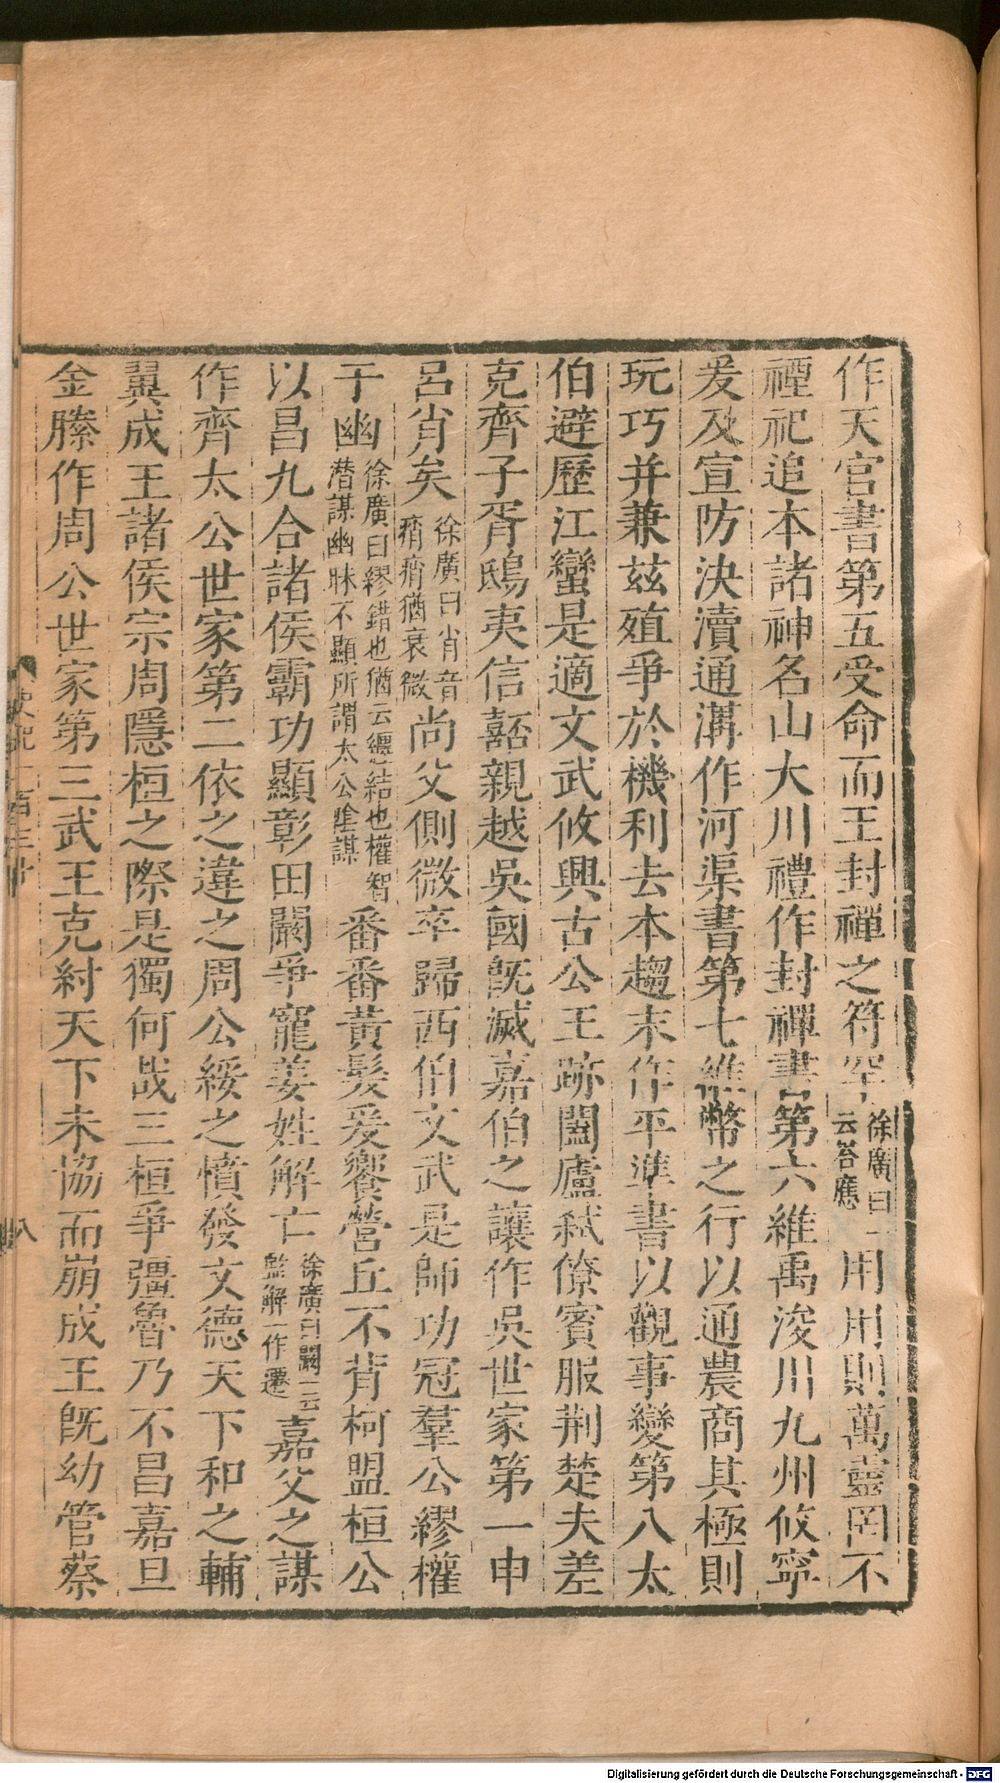 作天官書第五受命而王封禪之符罕徐廣曰一云答應用用則萬靈罔不
禋祀追本諸神名山大川禮作封禪書第六維禹浚川九州攸寧
爰及宣防決瀆通溝作河渠書第七維幣之行以通農商其極則
玩巧并兼茲殖爭於機利去本趨末作平準書以觀事變第八太
伯避歷江蠻是適文武攸興古公王跡闔廬弒僚賓服荆楚夫差
克齊子胥鴟夷信嚭親越吳國旣滅嘉伯之讓作吳世家第一申
呂肖矣徐廣曰肖音痟痟猶衰微尚父側微卒歸西伯文武是師功冠羣公繆權
于幽徐廣曰繆錯也猶云纏結也權智潛謀幽昧不顯所謂太公陰謀番番黃髮爰饗營丘不背柯盟桓公
以昌九合諸侯霸功顯彰田闞爭寵姜姓解亡徐廣曰闞一云監解一作遷嘉父之謀
作齊太公世家第二依之違之周公綏之憤發文德天下和之輔
翼成王諸侯宗周隱桓之際是獨何哉三桓爭彊魯乃不昌嘉旦
金縢作周公世家第三武王克紂天下未協而崩成王旣幼管蔡
史記一百三十
八
Digitalisierung gefördert durch die Deutsche Forschungsgemeinschaft - DFG